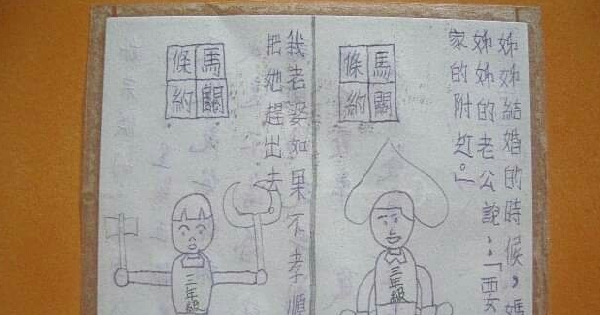 姊姊結婚的時候，媽
姊姊的老公說：「要
家的附近。」
馬關
條約
三年級
我老婆如果不孝順
把她趕出去
馬關
條約
三年級